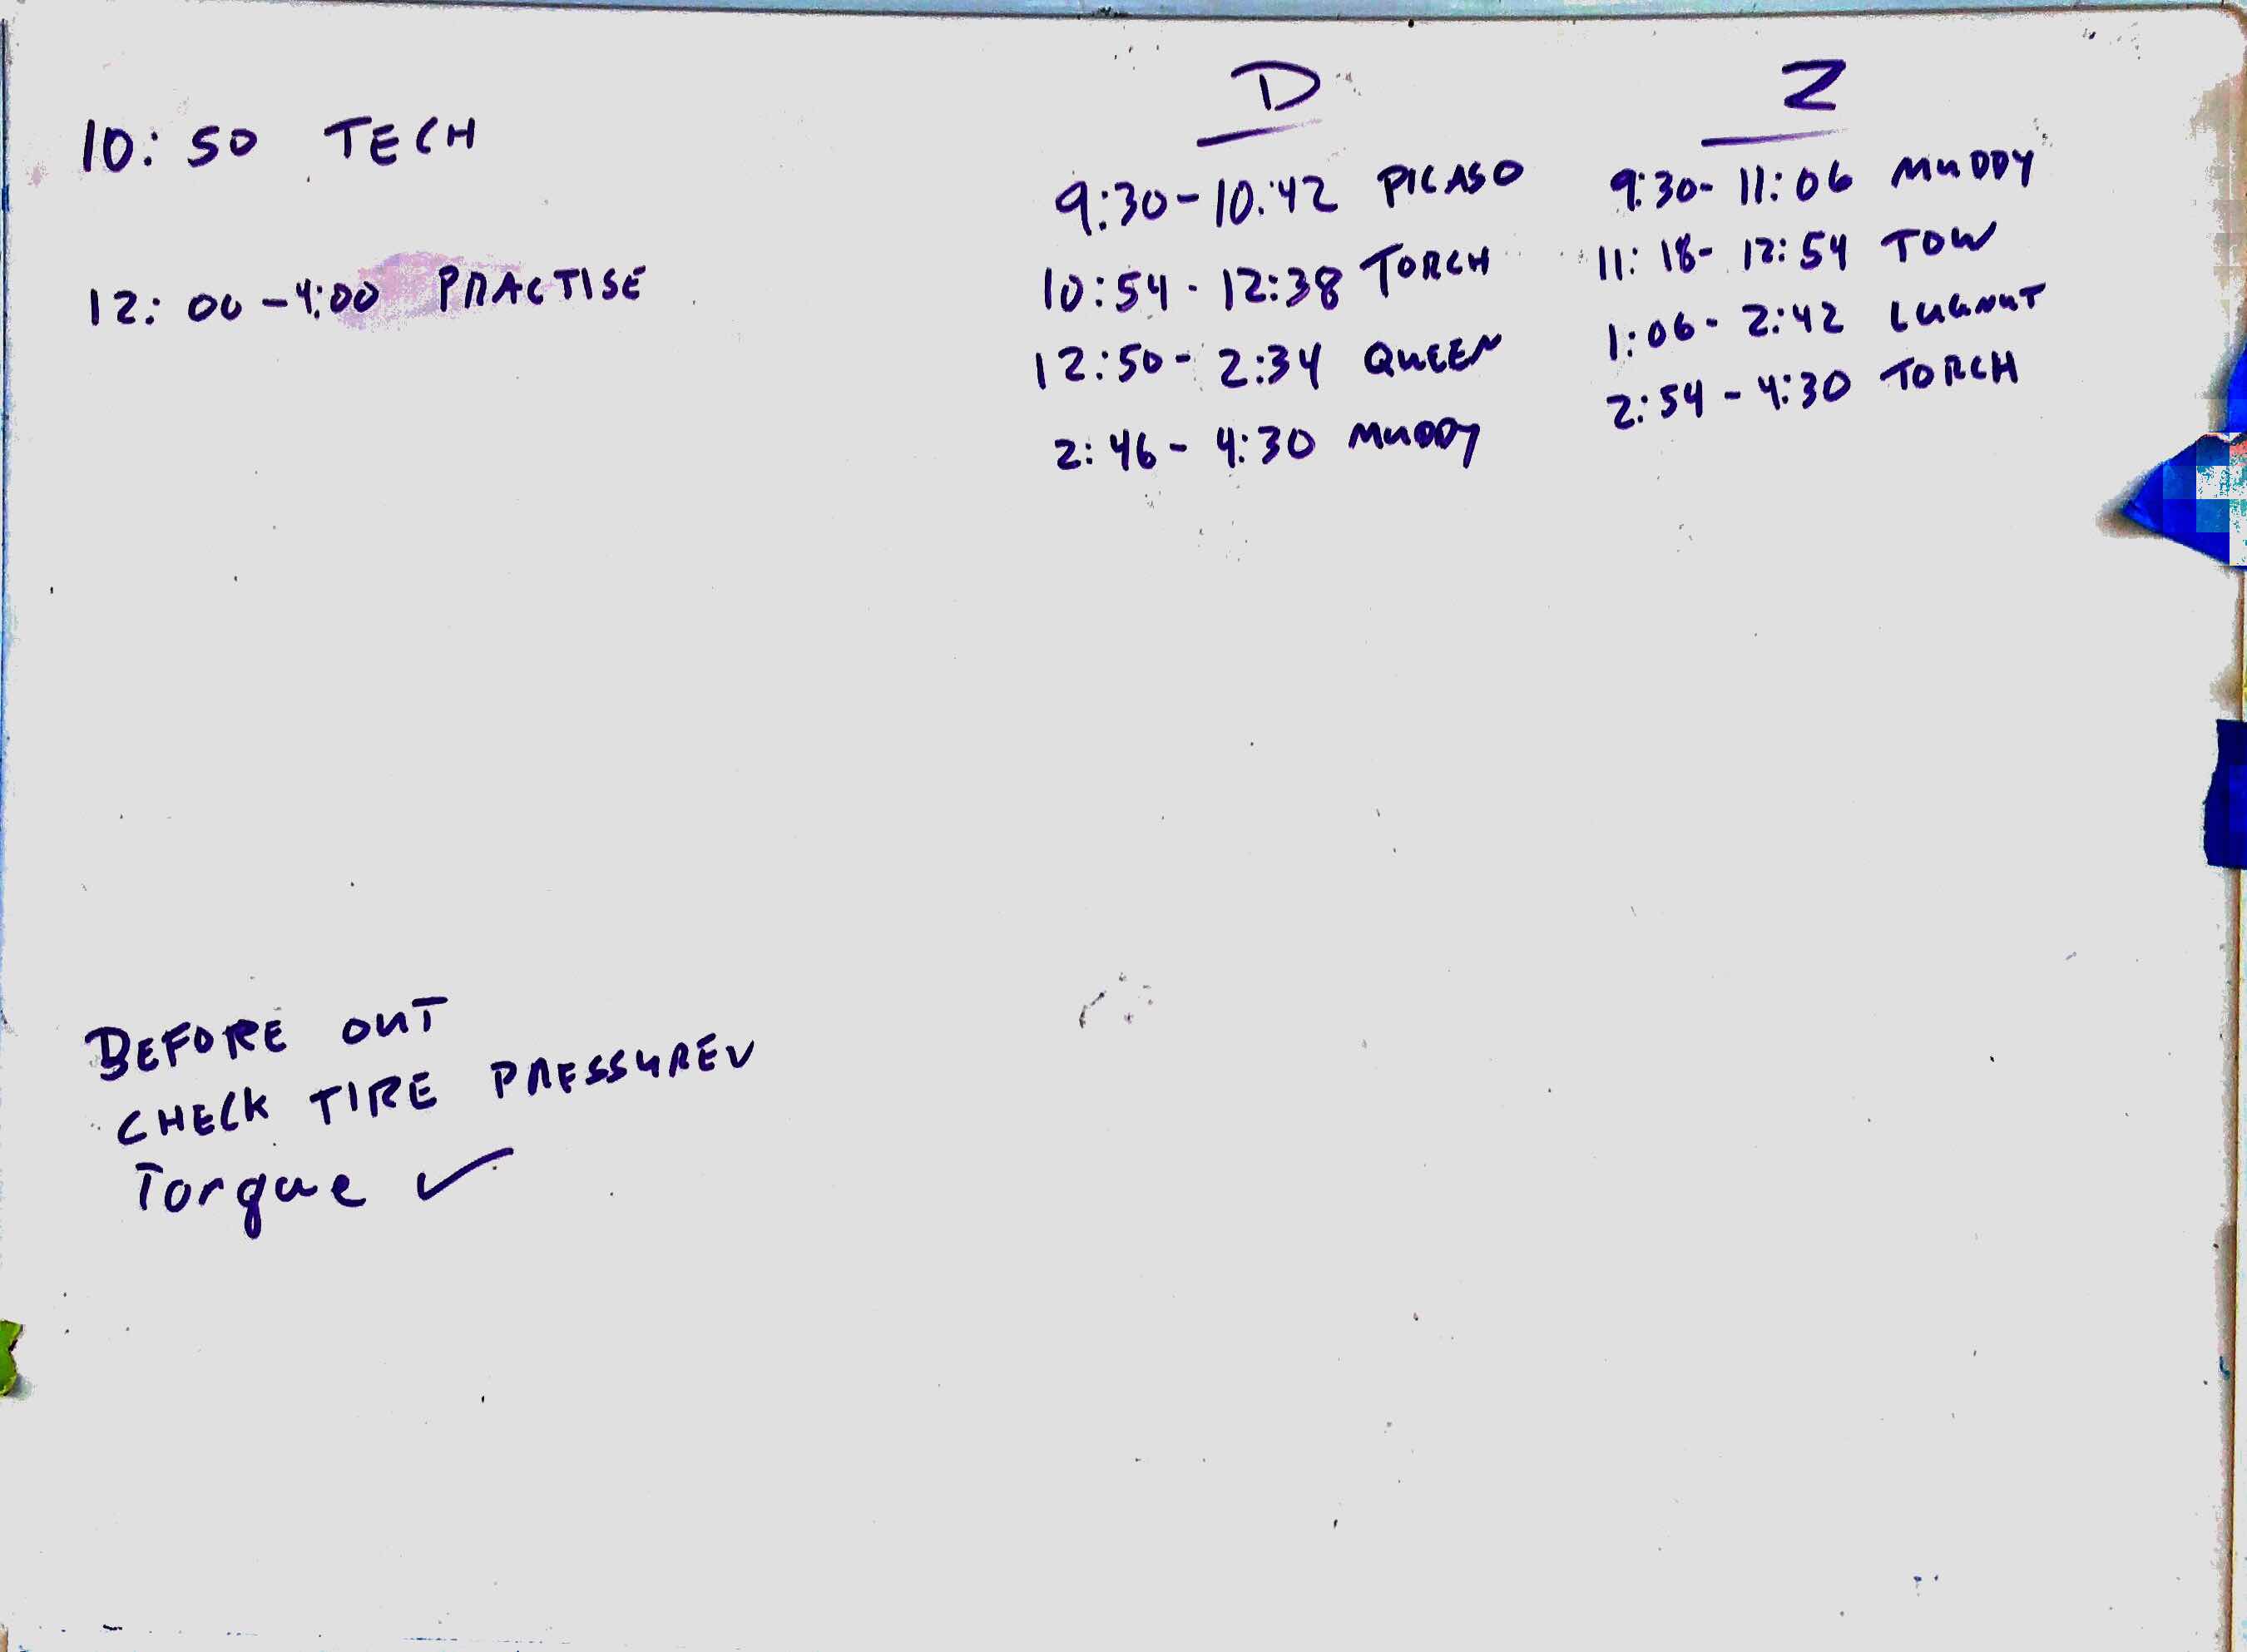 10:50 TECH
12:00-4:00 PRACTISE
D
9:30-10:42 PICASO
10:54-12:38 TORCH
12:50-2:34 QUEEN
2:46-4:30 MUDDY
Z
9:30-11:06 MUDDY
11:18-12:54 TOW
1:06-2:42 LUGNUT
2:54-4:30 TORCH
BEFORE OUT
CHECK TIRE PRESSURE✓
Torque ✓